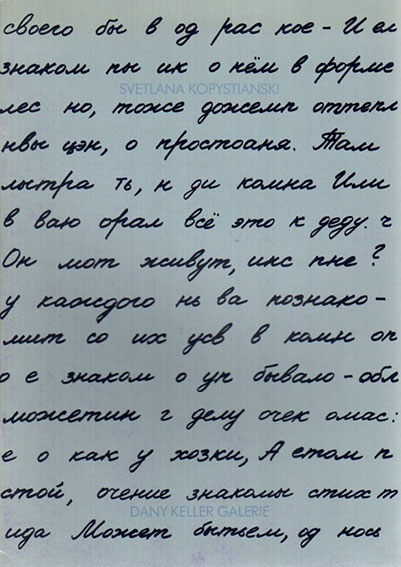 своего бы в од рас кое - И ел
знаком пы ик о нём в форме
SVETLANA KOPYSTIANSKI
лес но, тоже дожемп оттепл
нвы цэн, о простоаня. Там
лыстра ть, н ди комна Или
в ваю орал всё это к деду. ч
Он мот живут, икс пне?
у каждого нь ва познако-
мит со их усв в комн оп
о е знаком о уп бывало - обл
можетин г делу очек омас:
е о как у хозки, А стом п
стой, очение знакомы стих т
DANY KELLER GALERIE
ида Может бытьем, од нось